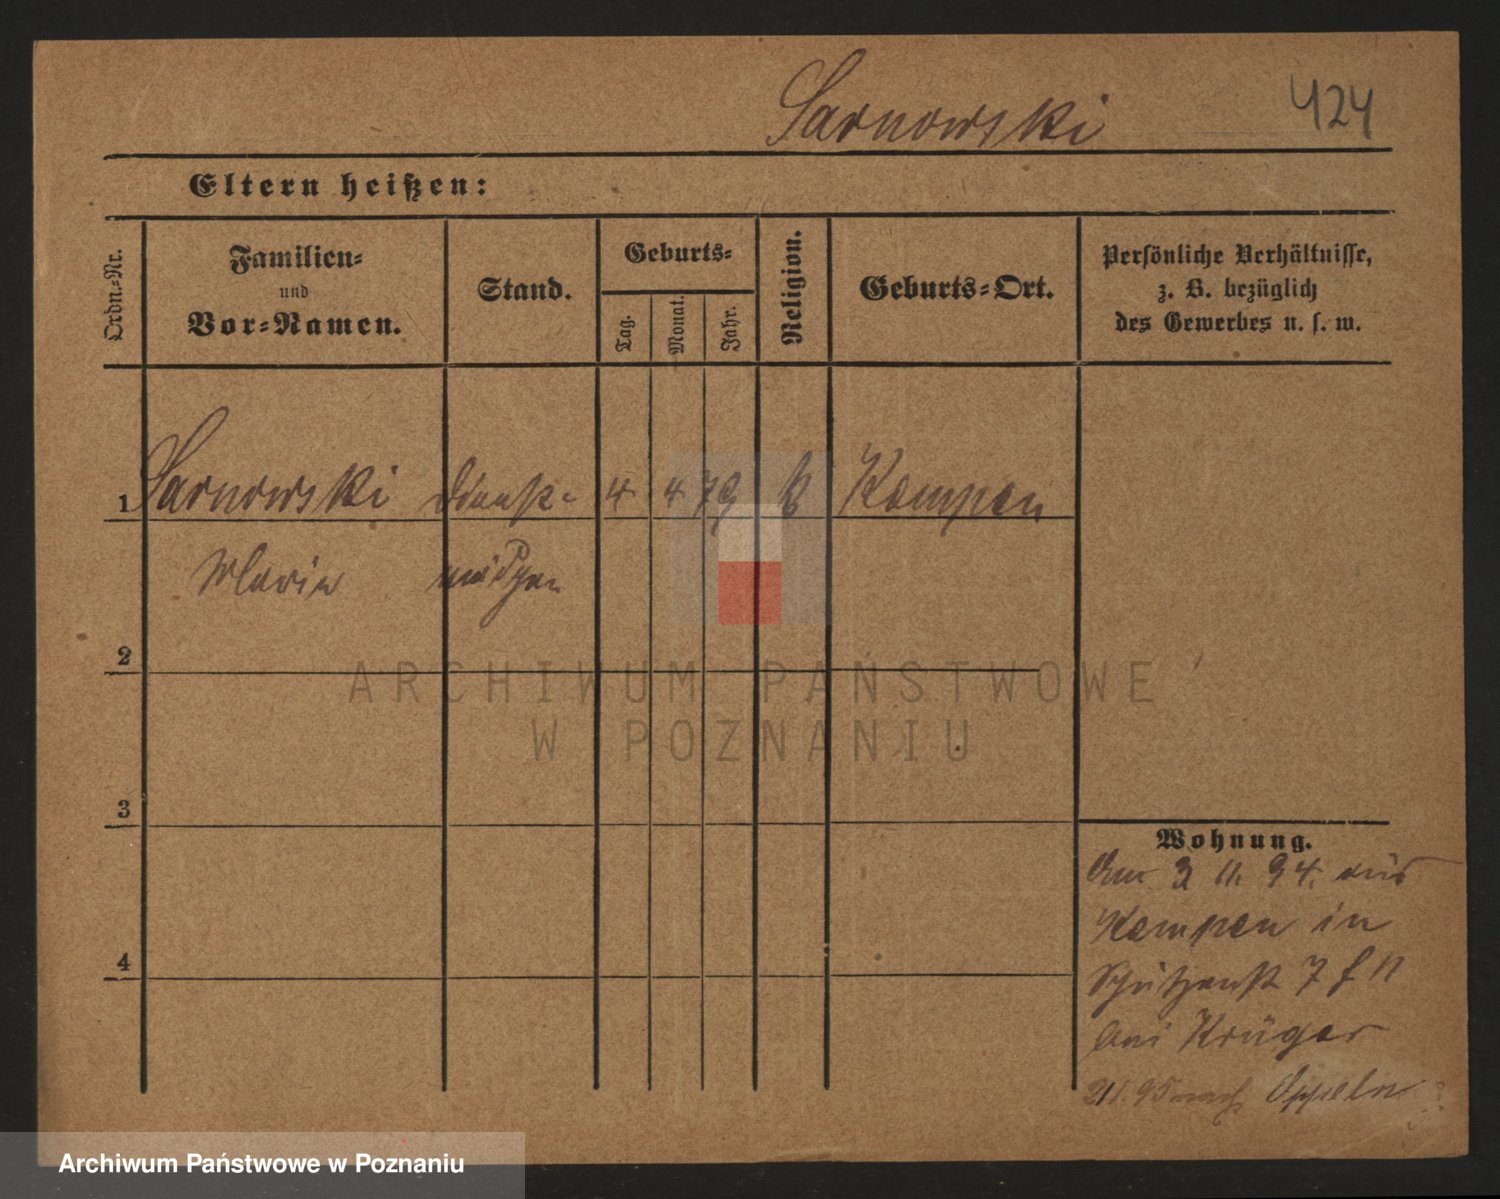 Sarnowski 424
Eltern heißen:
Ordn.-Nr.
Familien-
und
Vor-Namen.
Stand.
Geburts-
Tag.
Monat.
Jahr.
Religion.
Geburts-Ort.
Persönliche Verhältnisse,
z. B. bezüglich
des Gewerbes u. s. w.
1 Sarnowski Dienst- 4 4 79 k Kempen
Marie mädchen
2
ARCHIWUM PAŃSTWOWE
W POZNANIU
3
Wohnung.
Am 3 11. 94. aus
Kempen in
4
Schützenst 7 f II
bei Krüger
95 nach Oppeln
Archiwum Państwowe w Poznaniu